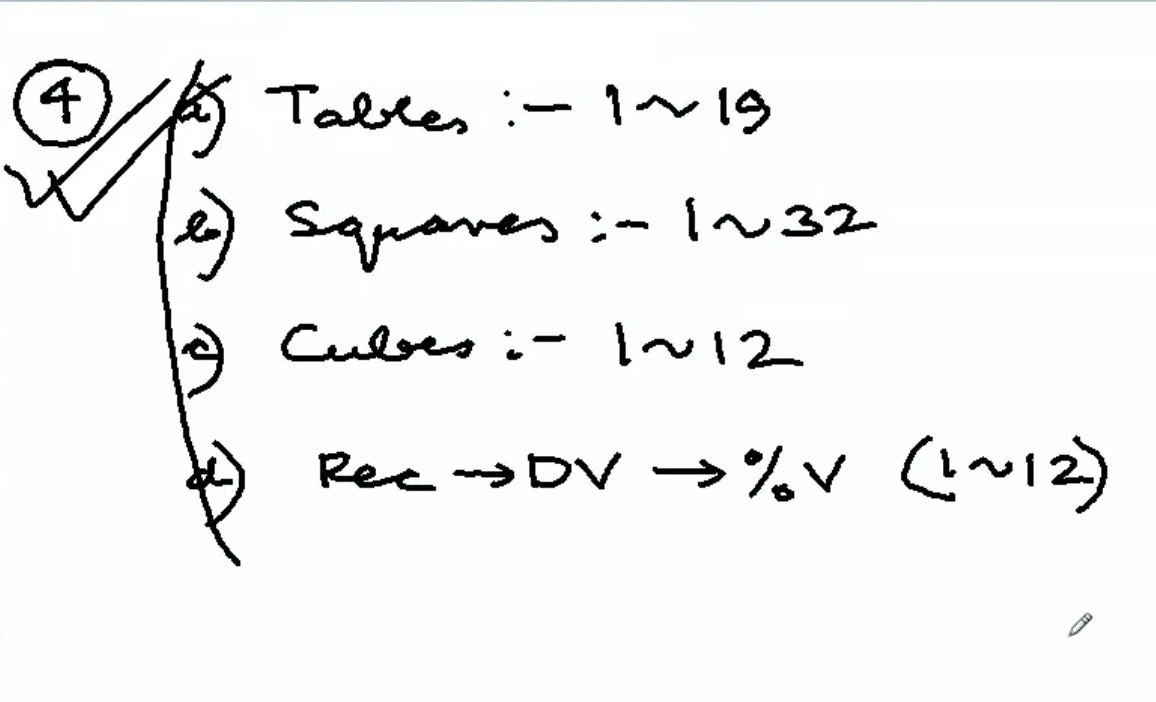 ④ a) Tables :- 1 ~ 19
b) Squares :- 1 ~ 32
c) Cubes :- 1 ~ 12
d) Rec → DV → % V (1 ~ 12)